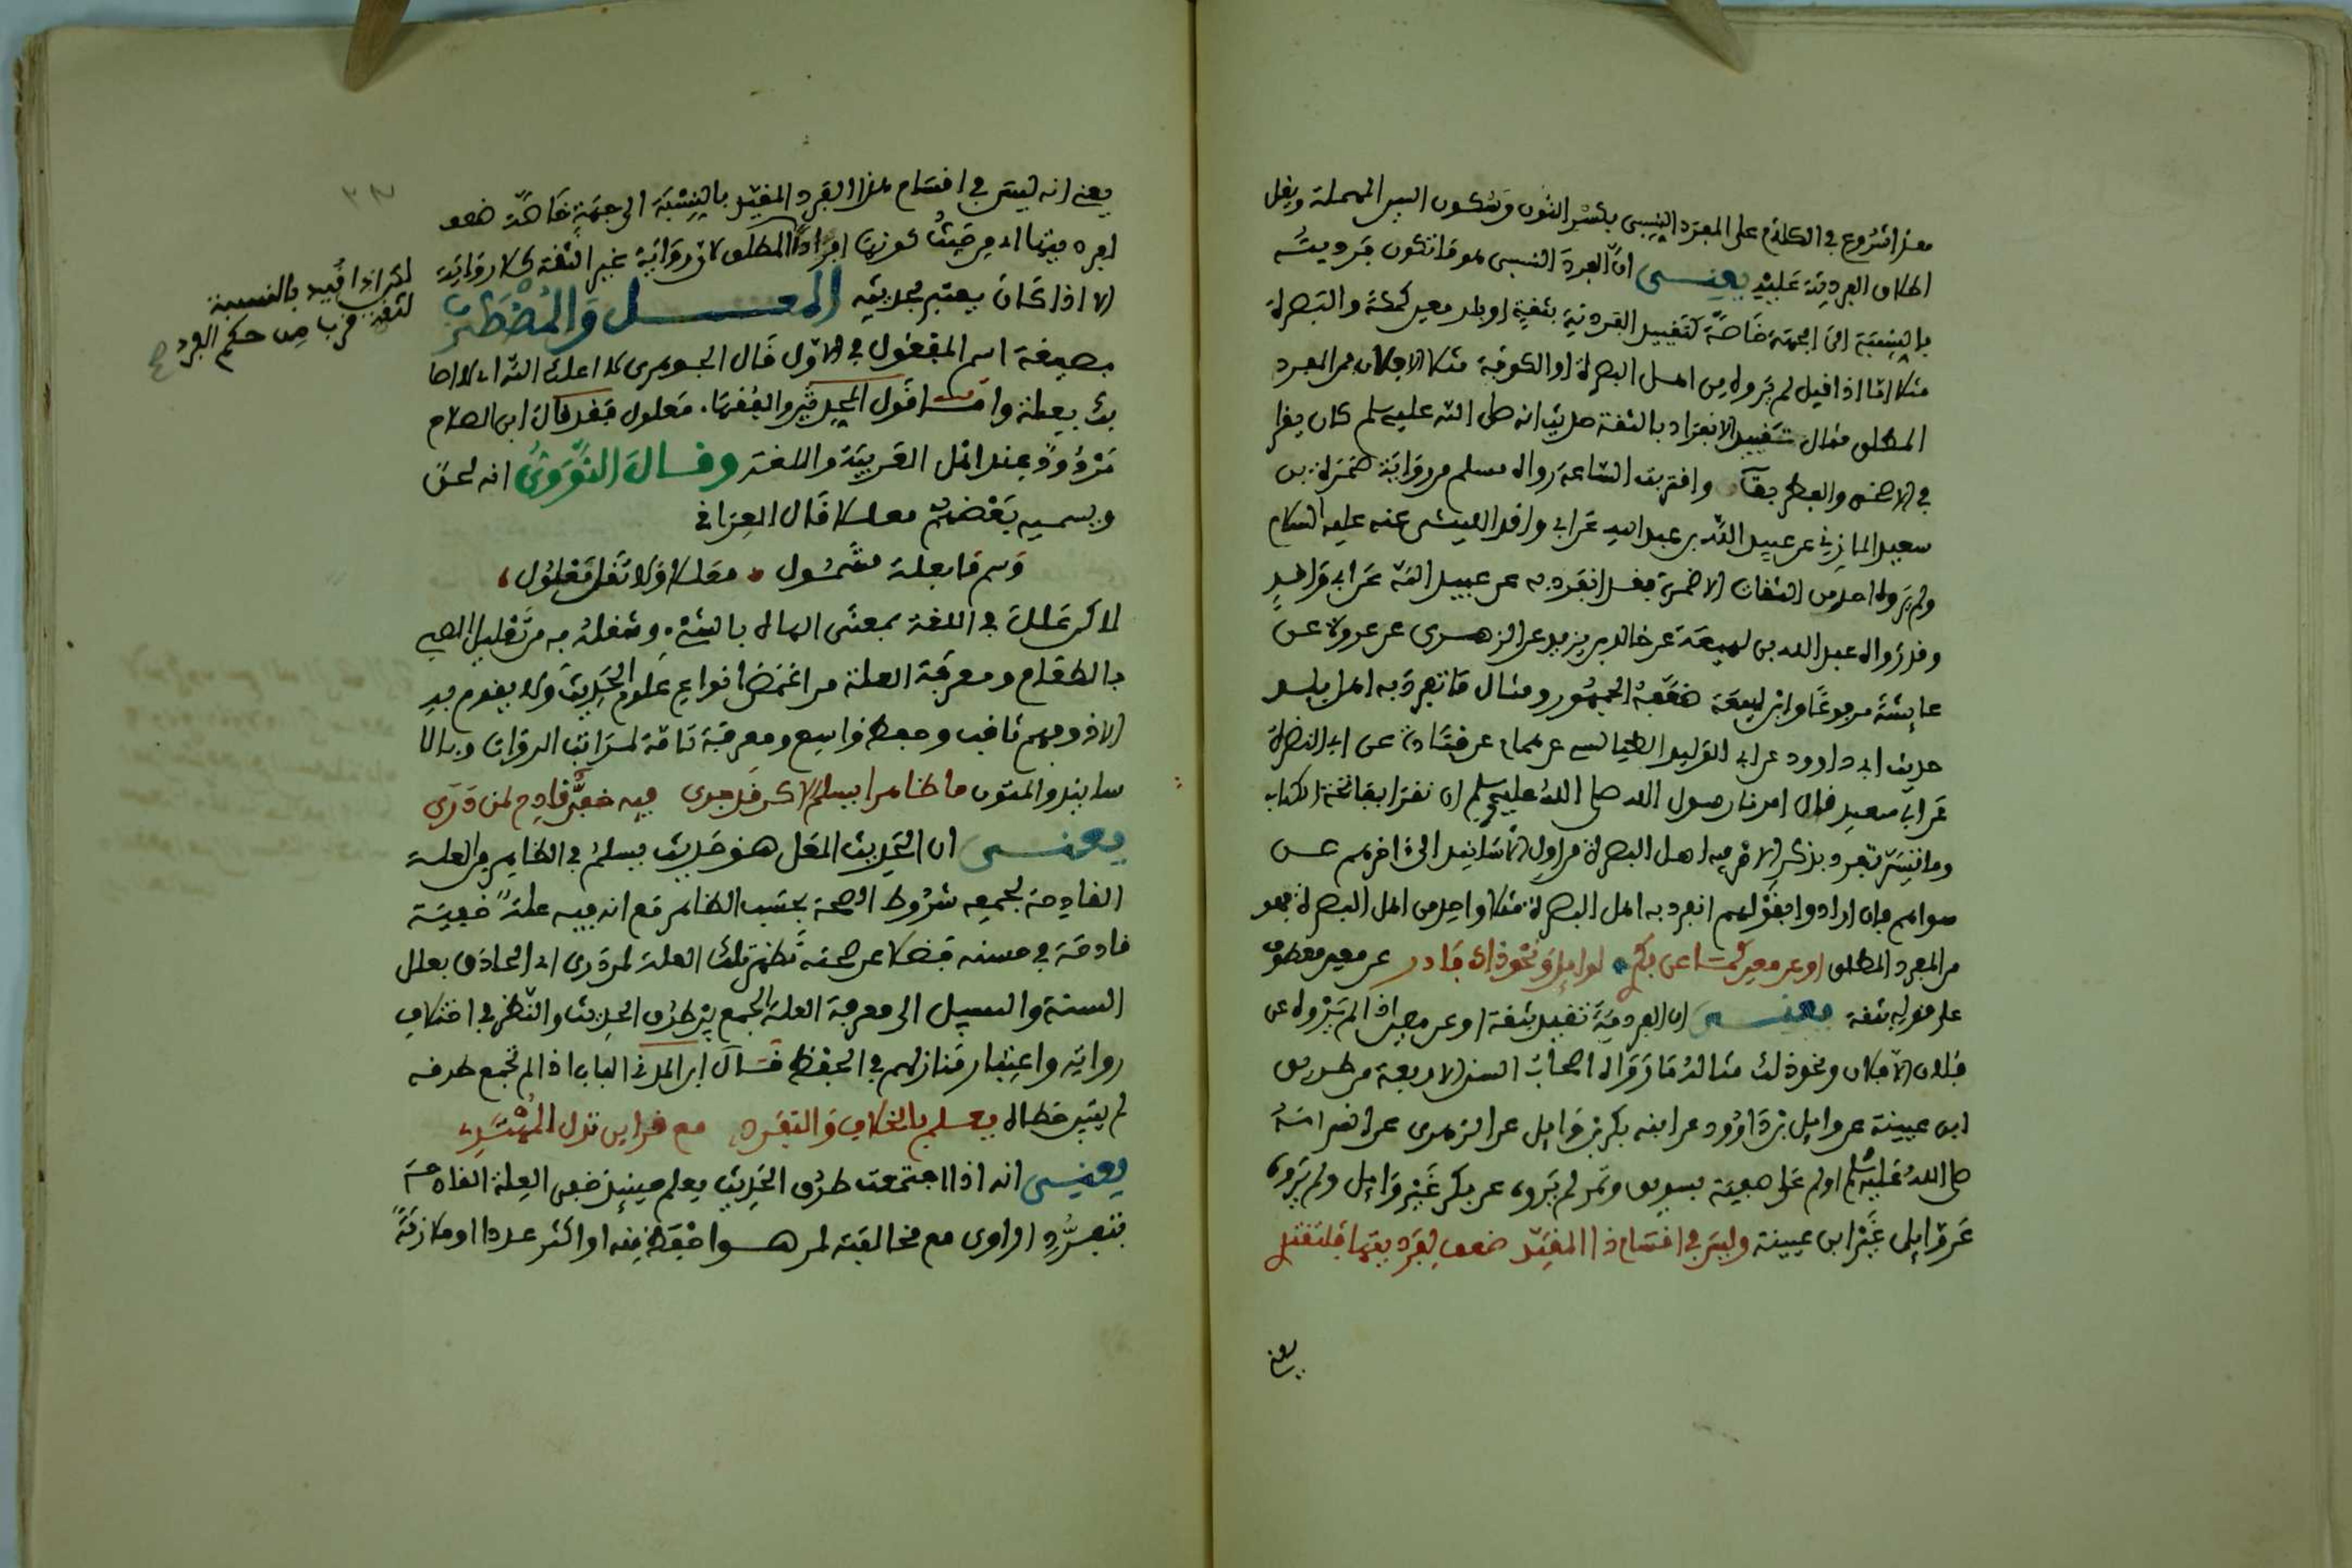 هذا شروع في الكلام على الفرد النسبي بكسر النون وسكون السين المهملة ويقل
اطلاق الفردية عليه يعني ان الفرد النسبي هو ما تكون فرديته
بالنسبة الى جهة خاصة كتقييد الفردية بثقة او بلد معين كمكة والبصرة
مثلا اما اذا قيل لم يروه من اهل البصرة او الكوفة مثلا الا فلان فمن الفرد
المطلق مثال تقييد الانفراد بالثقة حديث انه صلى الله عليه وسلم كان يقرا
في الاضحى والفطر بقاف واقتربت الساعة رواه مسلم من رواية ضمرة بن
سعيد المازني عن عبيد الله بن عبد الله عن ابي واقد الليثي عنه عليه السلام
ولم يروه احد من الثقات الا ضمرة فقد انفرد به عن عبيد الله عن ابي واقد
وقد رواه عبد الله بن لهيعة عن خالد بن يزيد عن الزهري عن عروة عن
عايشة مرفوعا وابن لهيعة ضعفه الجمهور ومثال ما تفرد به اهل بلد
حديث ابي داوود عن ابي الوليد الطيالسي عن همام عن قتادة عن ابي النضرة
عن ابي سعيد قال امرنا رسول الله صلى الله عليه وسلم ان نقرا بفاتحة الكتاب
وما تيسر تفرد بذكر الامر فيه اهل البصرة من اول الاسانيد الى اخرهم عن
سواهم فان ارادوا بقولهم انفرد به اهل البصرة مثلا واحد من اهل البصرة فهو
من الفرد المطلق او عن معين كمثل عن بكر لوايل ونحو ذاك فادر عن معين معطوف
على قوله بثقة يعني ان الفردية تقيد بثقة او عن معين اذا لم يروه عن
فلان الا فلان ونحو ذلك مثاله ما رواه اصحاب السنن الاربعة من طريق
ابن عيينة عن وايل بن داوود عن ابنه بكر بن وايل عن الزهري عن انس انه
صلى الله عليه وسلم اولم على صفية بسويق وتمر لم يروه عن بكر غير وايل ولم يروه
عن وايل غير ابن عيينة وليس في اقسام ذا المقيد ضعف لفرد بقيتها فلتقتد
يعني
يعني انه ليس في اقسام هذا الفرد المقيد بالنسبة الى جهة خاصة ضعف
لفرد فيها اي من حيث كونها افرادا المطلق لان رواية غير الثقة كلا رواية
الا اذا كان يعتبر بحديثه المعل والمضطرب
بصيغة اسم المفعول في الاول قال الجوهري لا اعلك الله اي لا اصا
بك بعلة واما قول المحدثين والفقهاء معلول فقد قال ابن الصلاح
مردود عند اهل العربية واللغة وقال النووي انه لحن
ويسميه بعضهم معللا قال العراقي
وسم ما بعلة مشمول معللا ولا تقل معلول
لاكن علل في اللغة بمعنى الهاه بالشيء وشغله به من تعليل الصبي
بالطعام ومعرفة العلة من اغمض انواع علوم الحديث ولا يقوم به
الا ذو فهم ثاقب وحفظ واسع ومعرفة تامة لمراتب الرواة وبالا
سانيد والمتون ما ظاهرا يسلم لاكن قد جرى فيه خفي قادح لمن درى
يعني ان الحديث المعل هو حديث يسلم في الظاهر من العلة
القادحة لجمعه شروط الصحة بحسب الظاهر مع انه فيه علة خفية
قادحة في حسنه فضلا عن صحته تظهر تلك العلة لمن درى اي الحاذق بعلل
السنة والسبيل الى معرفة العلة الجمع بين طرق الحديث والنظر في اختلاف
رواته واعتبار منازلهم في الحفظ قال ابن المديني الباب اذا لم تجمع طرقه
لم يتبين خطاه يعلم بالخلاف والتفرد مع قراين تدل المهتد
يعني انه اذا اجتمعت طرق الحديث يعلم حينيذ خفي العلة القادحة
بتفرد الراوي مع مخالفته لمن هو احفظ منه او اكثر عددا او ملازمة
لكن اذا قيد بالنسبة
لثقة قرب من حكم الفرد